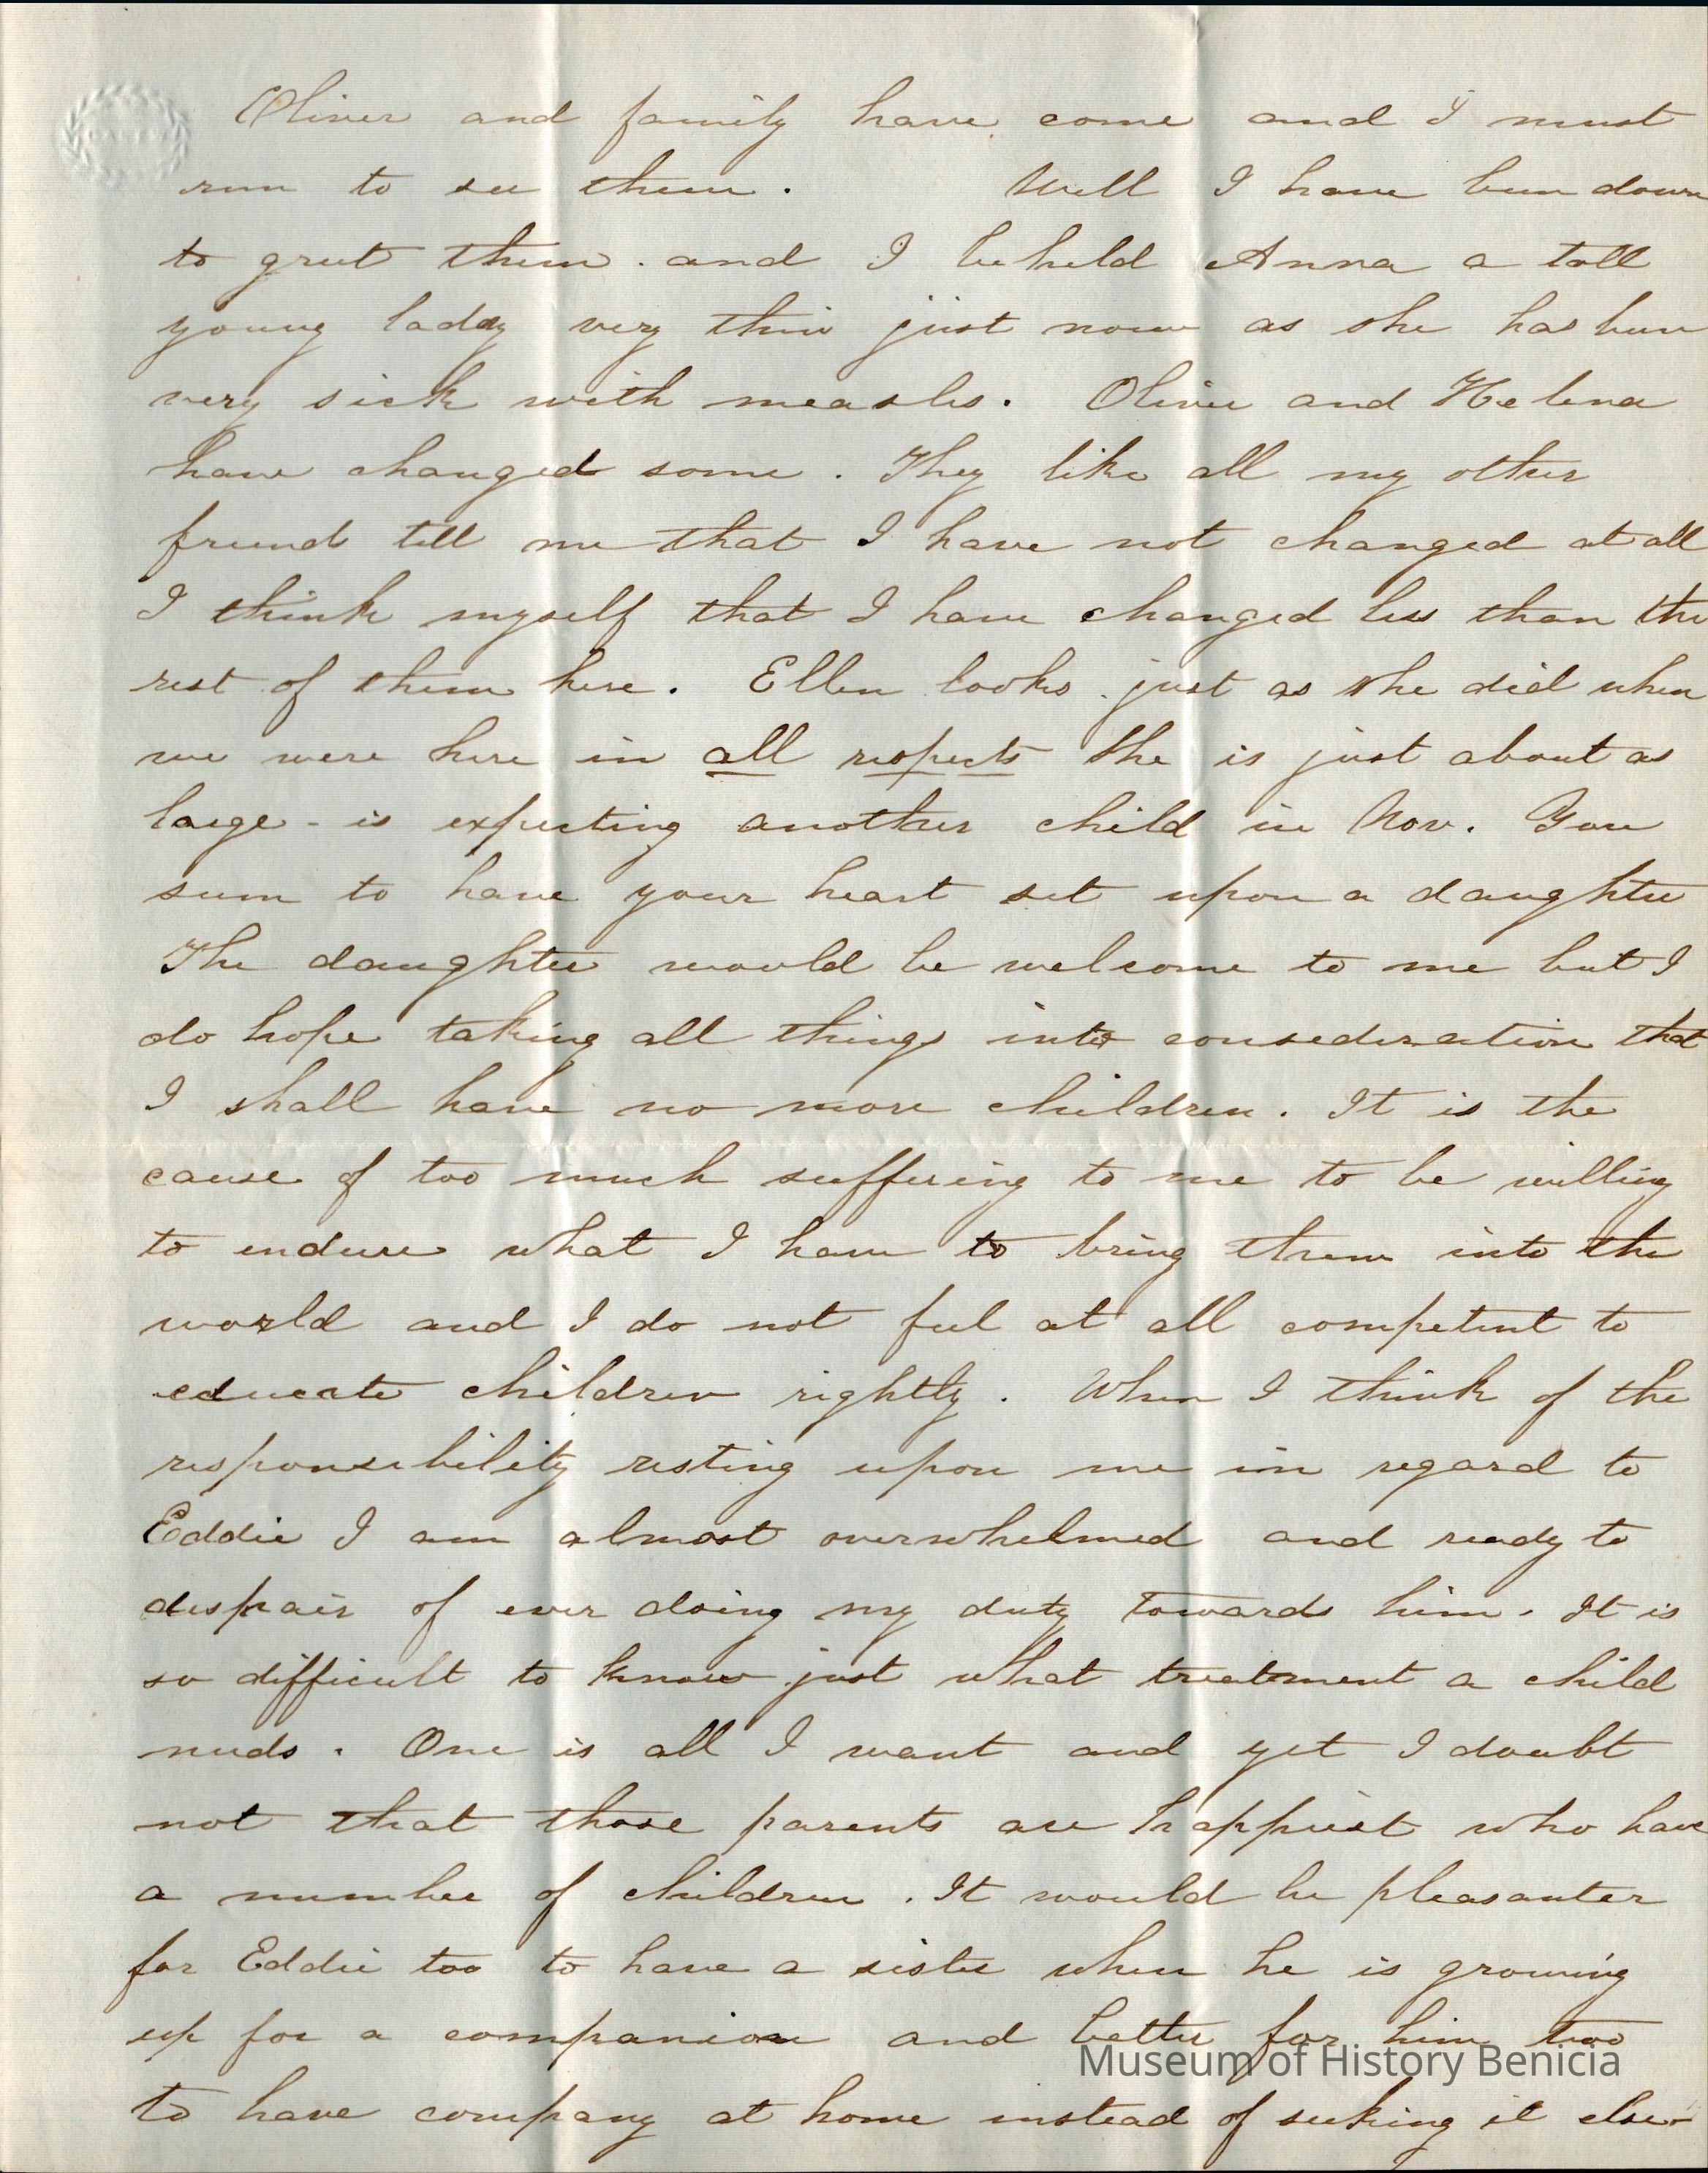 Oliver and family have come and I must
run to see them. Well I have been down
to greet them. and I beheld Anna a tall
young lady very thin just now as she has been
very sick with measles. Oliver and Helena
have changed some. They like all my other
friend tell me that I have not changed at all
I think myself that I have changed less than the
rest of them here. Ellen looks just as she did when
we were here in all respects She is just about as
large - is expecting another child in Nov. You
seem to have your heart set upon a daughter
The daughter would be welcome to me but I
do hope taking all things into consederation that
I shall have no more children. It is the
cause of too much suffering to me to be willing
to endure what I have to bring them into the
world and I do not feel at all competent to
educate children rightly. When I think of the
responsibility resting upon me in regard to
Eddie I am almost overwhelmed and ready to
despair of ever doing my duty towards him. It is
so difficult to know just what treatment a child
needs. One is all I want and yet I doubt
not that those parents are happiest who have
a number of children. It would be pleasanter
for Eddie too to have a sister when he is growing
up for a companion and better for him too
Museum of History Benicia
to have company at home instead of seeking it else-